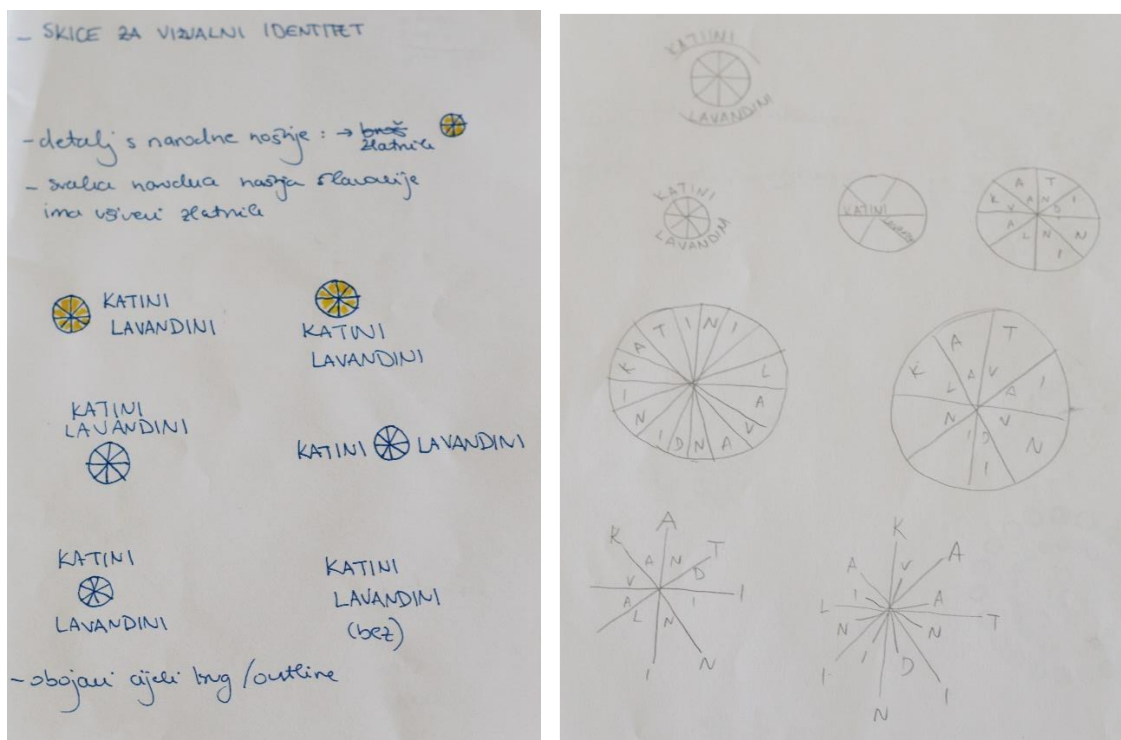 - SKICE ZA VIZUALNI IDENTITET
- detalj s narodne nošnje : → broš
zlatnik
- svaka narodna nošnja Slavonije
ima všiveni zlatnik
KATINI
LAVANDINI
KATINI
LAVANDINI
KATINI
LAVANDINI
KATINI LAVANDINI
KATINI
LAVANDINI
KATINI
LAVANDINI
(bez)
- obojani cijeli krug / outline
KATIINI
LAVANDINI
KATINI
LAVANDINI
KATINI
K A T I N I
L A V A N D I N
K A T I N I
L A V A N D I N I
K A T I N I
L A V A V D I N
K A T I N I
L A V A N D I N
K A T I N I
L A V A N D I N I